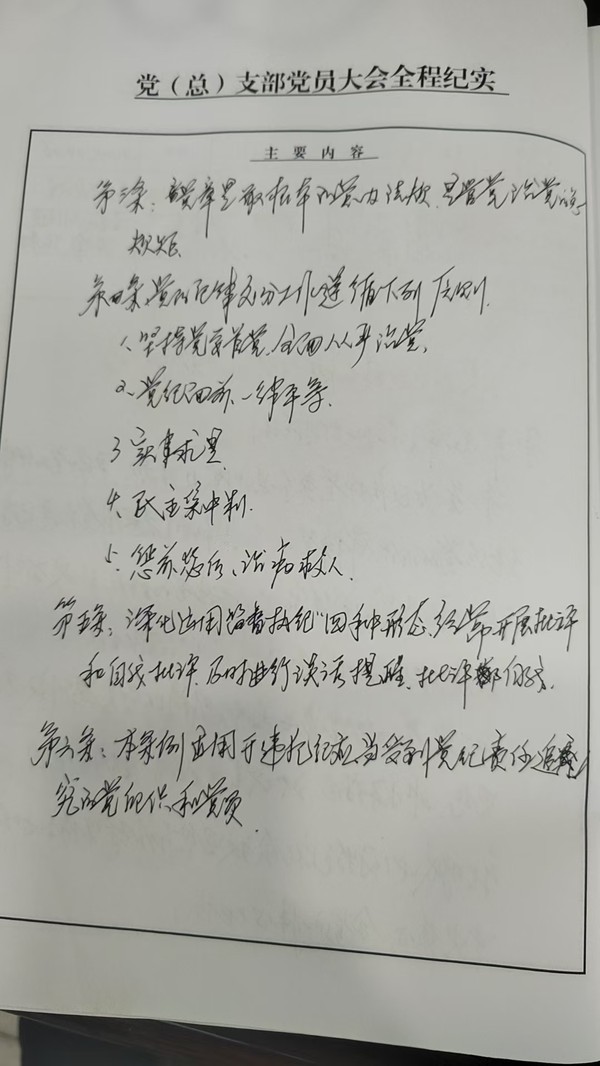 党（总）支部党员大会全程纪实
主要内容
第三条：党章是最根本的党内法规，是管党治党的总
规矩.
第四条，党的纪律处分工作遵循下列原则.
1、坚持党要管党、全面从严治党、
2、党纪面前、一律平等.
3 实事求是
4、民主集中制.
5、惩前毖后、治病救人.
第五条：深化运用监督执纪“四种形态，经常开展批评
和自我批评、及时进行谈话提醒、批评
第六条：本条例适用于违犯纪应当受到党纪责任追
究的党组织和党员